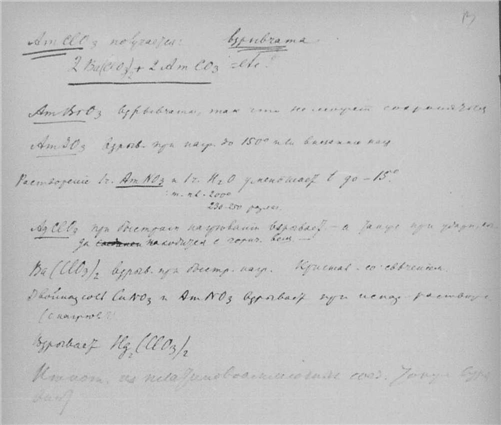 AmClO3 получается: взрывчата
2 Ba(ClO3)2 + 2 Am CO3
AmBrO3 взрывчата, так что не может сохраняться
AmJO3 взрыв. при нагр. до 150° или
Растворение 1 г. AmNO3 в 1 г. H2O уменьшает t до –15°
т. пл. 200°
230-250 разл.
AgClO3 при быстром нагревании взрывает — а также при ударе,
находится с горюч. вещ —
Ba(ClO3)2 взрыв. при быстр. нагр. Кристал. со свечением
Двойная соль CuNO3 и AmNO3 взрывает при испар. раствора
(с нагрев?)
взрывает Hg2(ClO3)2
Некот. из соед. также взры
вают